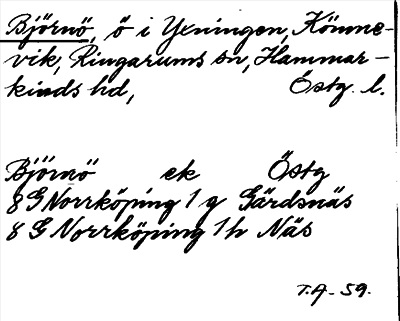 Björnö, ö i Yxningen, Könne-
vik, Ringarums sn, Hammar-
kinds hd, Östg. l.
Björnö ek Östg
8 G Norrköping 1 g Gärdsnäs
8 G Norrköping 1 h Näs
T.A. - 59.